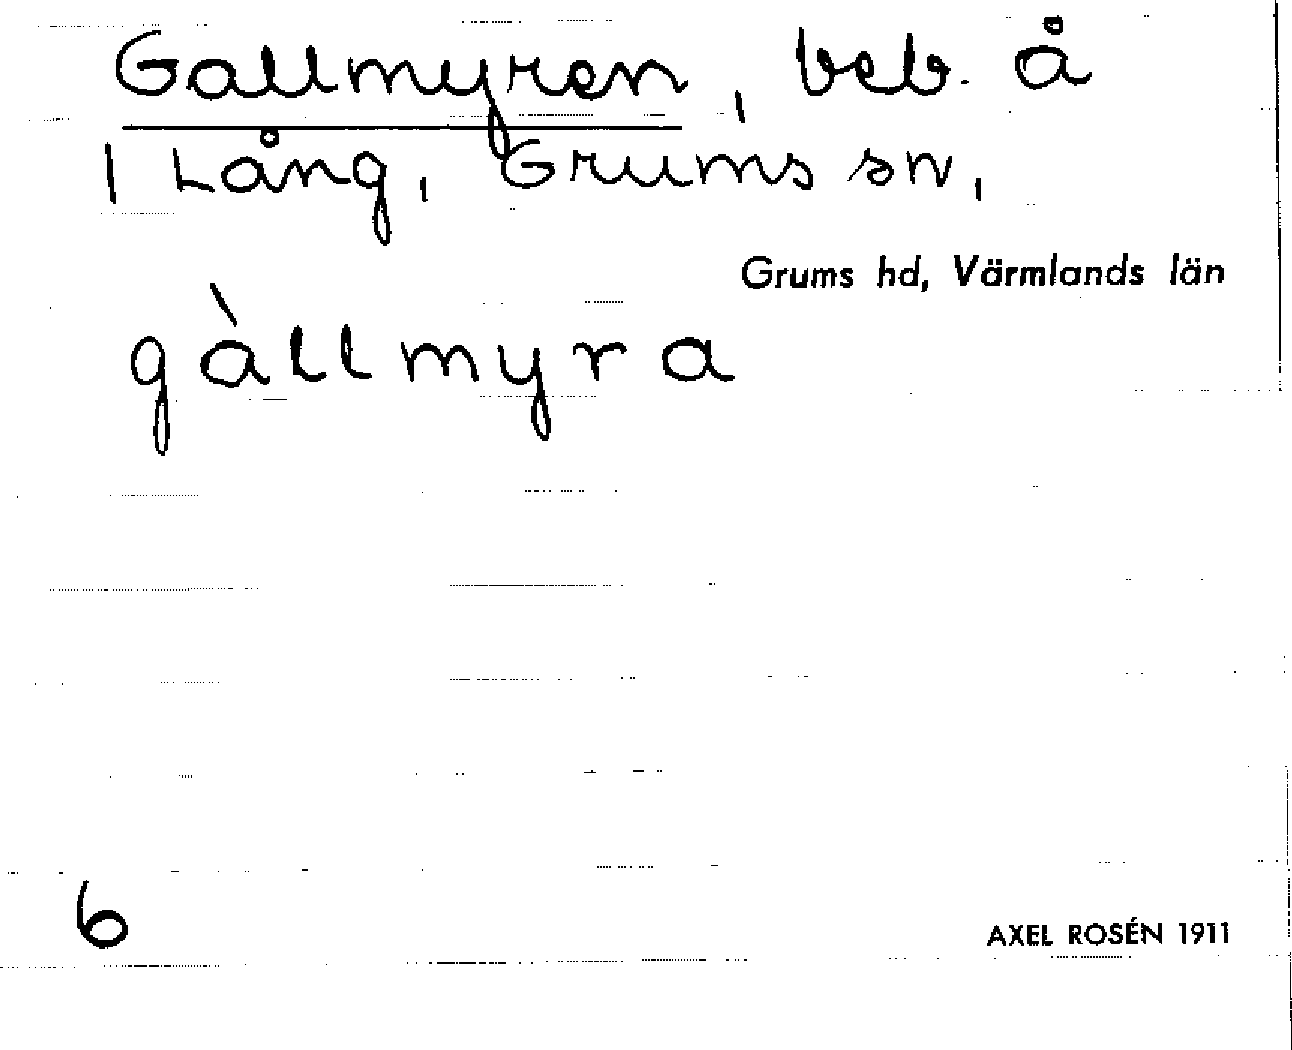 Gallmyren, beb. å
1 Lång, Grums sn,
Grums hd, Värmlands län
gàllmyra
6
AXEL ROSÉN 1911